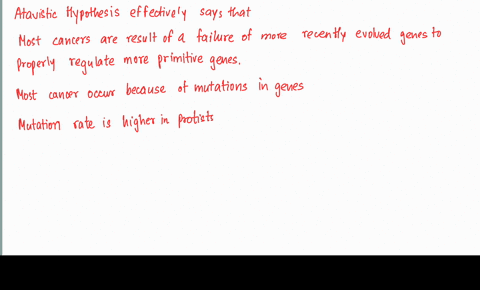 Atavistic Hypothesis effectively says that
Most cancers are result of a failure of more recently evolved genes to
properly regulate more primitive genes.
Most cancer occur because of mutations in genes
Mutation rate is higher in protists